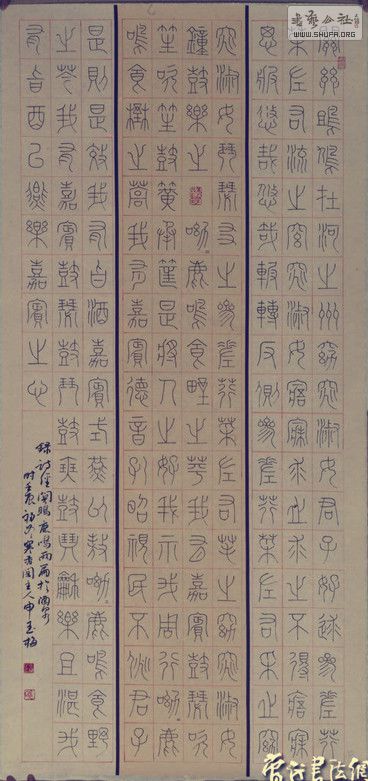 關關雎鳩在河之州窈窕淑女君子好逑參差荇
菜左右流之窈窕淑女寤寐求之求之不得寤寐
思服悠哉悠哉輾轉反側參差荇菜左右采之窈
窕淑女琴瑟友之參差荇菜左右芼之窈窕淑女
鐘鼓樂之呦鹿鳴食野之苹我有嘉賓鼓瑟吹
笙吹笙鼓簧承筐是將人之好我示我周行呦鹿
鳴食野之蒿我有嘉賓德音孔昭視民不恌君子
是則是傚我有旨酒嘉賓式燕以敖呦鹿鳴食野
之芩我有嘉賓鼓瑟鼓琴鼓瑟鼓琴龢樂且湛我
有旨酒以燕樂嘉賓之心
錄詩經關雎鹿鳴兩篇於
書法公社
WWW.SHUFA.ORG